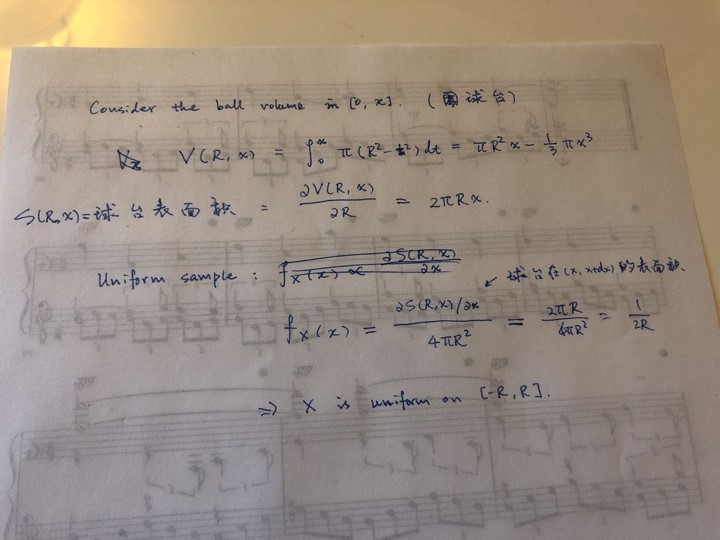 Consider the ball volume in [0, x]. (球台)
V(R, x) = ∫₀ˣ π(R²-t²)dt = πR²x - 1/3 πx³
S(R,x)=球台表面积 = ∂V(R,x)/∂R = 2πRx.
Uniform sample: f_X(x) ∝ ∂S(R,x)/∂x
↙ 球台在(x, x+dx)的表面积.
f_X(x) = ∂S(R,x)/∂x / 4πR² = 2πR/4πR² = 1/2R
⇒ X is uniform on [-R, R].